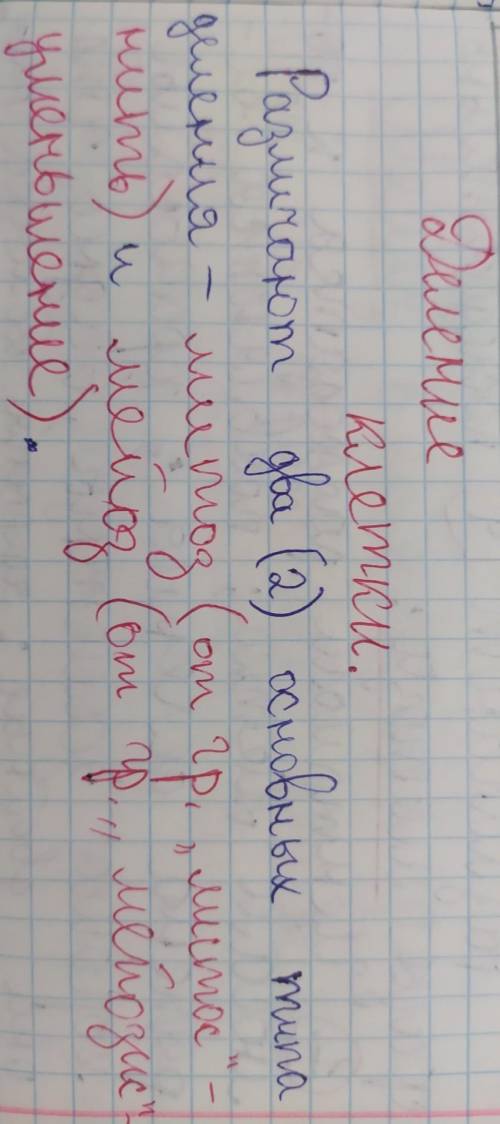 Деление
клетки.
Различают два (2) основных типа
деления – митоз (от гр. „митос" –
нить) и мейоз (от гр. „мейозис" –
уменьшение).